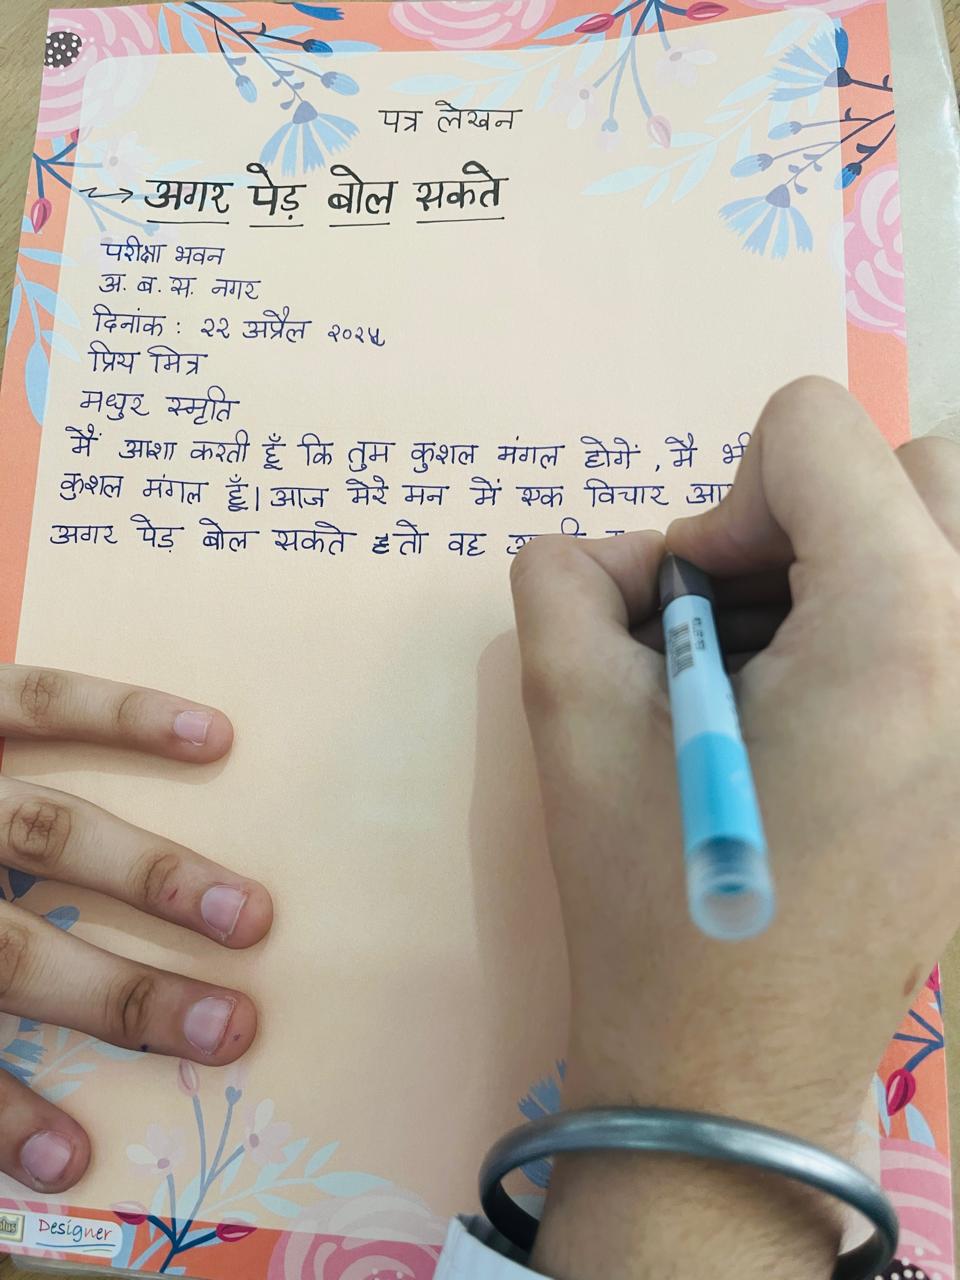 पत्र लेखन
अगर पेड़ बोल सकते
परीक्षा भवन
अ. ब. स. नगर
दिनांक : २२ अप्रैल २०२५
प्रिय मित्र
मधुर स्मृति
मैं आशा करती हूँ कि तुम कुशल मंगल होगें , मै भी
कुशल मंगल हूँ। आज मेरे मन में एक विचार
अगर पेड़ बोल सकते तो वह
Designer